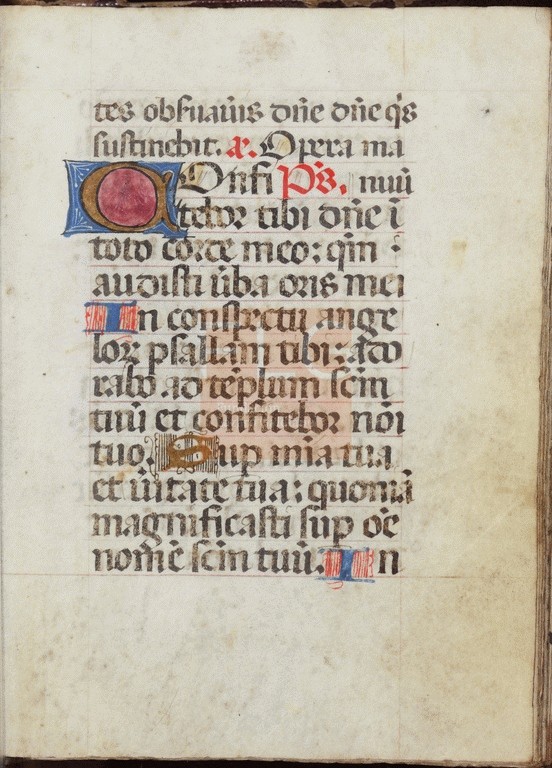 tes obſuau̅is dn̅e dn̅e q̅s
ſuſtinebit. a̅. Opera ma
COnfi Ps̅. nuu̅
tebor tibi dn̅e i̅
toto corde meo: qm̅
audiſti u̅ba oris mei
In conſpectu ange
loꝝ pſallam tibi: ado
rabo ad te̅plum ſcm̅
tuu̅ et confitebor noi̅
tuo. Sup mi̅a tua
et u̅itate tua: quonia̅
magnificaſti ſup oe̅
nome̅ ſcm̅ tuu̅. In